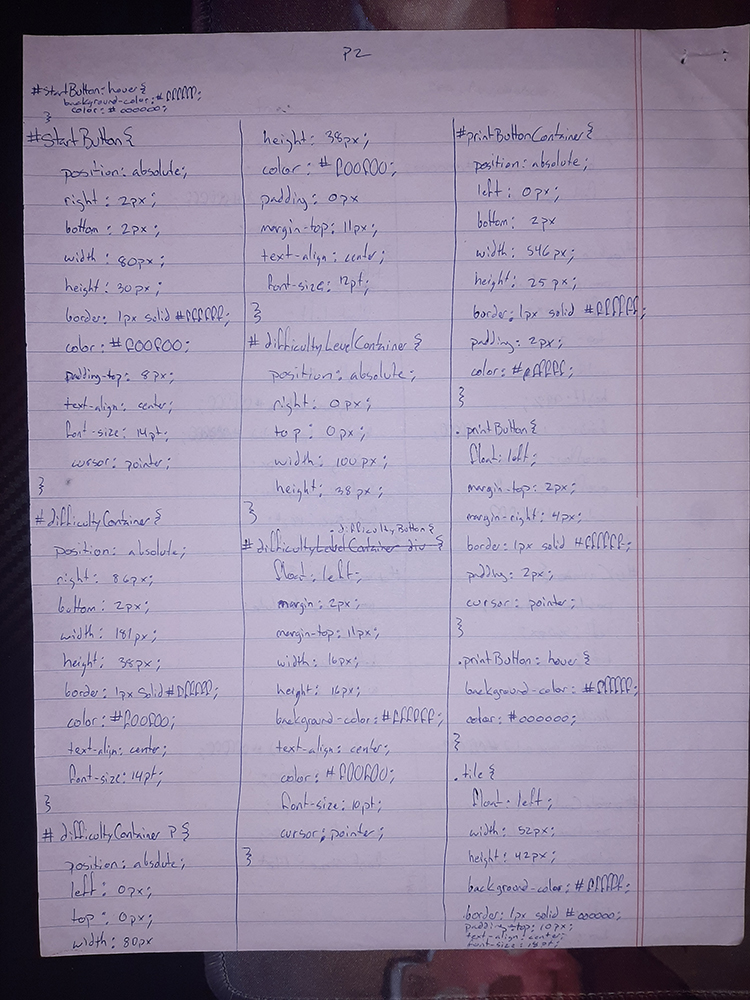 P2
#startButton:hover{
background-color:#ffffff;
color:#000000;
}
#StartButton{
position: absolute;
right: 2px;
bottom: 2px;
width: 80px;
height: 30px;
border: 1px solid #ffffff;
color: #f00f00;
padding-top: 8px;
text-align: center;
font-size: 14pt;
cursor: pointer;
}
#difficultyContainer{
position: absolute;
right: 86px;
bottom: 2px;
width: 181px;
height: 38px;
border: 1px Solid #ffffff;
color: #f00f00;
text-align: center;
font-size: 14pt;
}
#difficultyContainer P{
position: absolute;
left: 0px;
top: 0px;
width: 80px
height: 38px;
color: #f00f00;
padding: 0px
margin-top: 11px;
text-align: center;
font-size: 12pt;
}
#difficultyLevelContainer{
position: absolute;
right: 0px;
top: 0px;
width: 100px;
height: 38px;
}
.difficultyButton{
#difficultyLevelContainer div {
float: left;
margin: 2px;
margin-top: 11px;
width: 16px;
height: 16px;
background-color: #ffffff;
text-align: center;
color: #f00f00;
font-size: 10pt;
cursor: pointer;
}
#printButtonContainer{
position: absolute;
left: 0px;
bottom: 2px
width: 546px;
height: 25px;
border: 1px solid #ffffff;
padding: 2px;
color: #ffffff;
}
.printButton{
float: left;
margin-top: 2px;
margin-right: 4px;
border: 1px solid #ffffff;
padding: 2px;
cursor: pointer;
}
.printButton:hover{
background-color: #ffffff;
color: #000000;
}
.tile{
float: left;
width: 52px;
height: 42px;
background-color: #ffffff;
border: 1px solid #000000;
padding-top: 10px;
text-align: center;
font-size: 18pt;